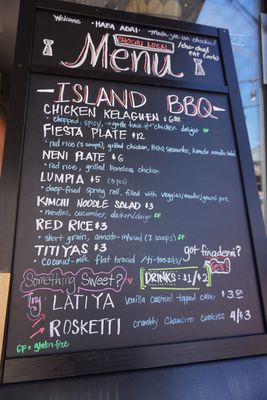 Welcome
HAFA ADAI
CHOOSE LOCAL
Menu
eat (verb)
ISLAND BBQ
CHICKEN KELAGUEN
chopped, spicy,
GF
FIESTA PLATE $12
red rice (2 scoops), grilled chicken, BBQ spareribs, kimchi noodle salad
NENI PLATE $6
red rice, grilled boneless chicken
LUMPIA $5 (3 pcs)
deep-fried spring roll, filled with veggies/noodles/ground pork
KIMCHI NOODLE SALAD $3
noodles, cucumber, daikon/
GF
RED RICE $3
short grain, annato-infused (2 scoops) GF
TITIYAS $3
coconut-milk flat bread /ti-tee-zhs/
got finadenni?
Yes!
Something Sweet?
DRINKS: $1/$2
Try
LATIYA vanilla custard topped cake $3.50
ROSKETTI crumbly Chamorro cookies 4/$3
GF = gluten-free